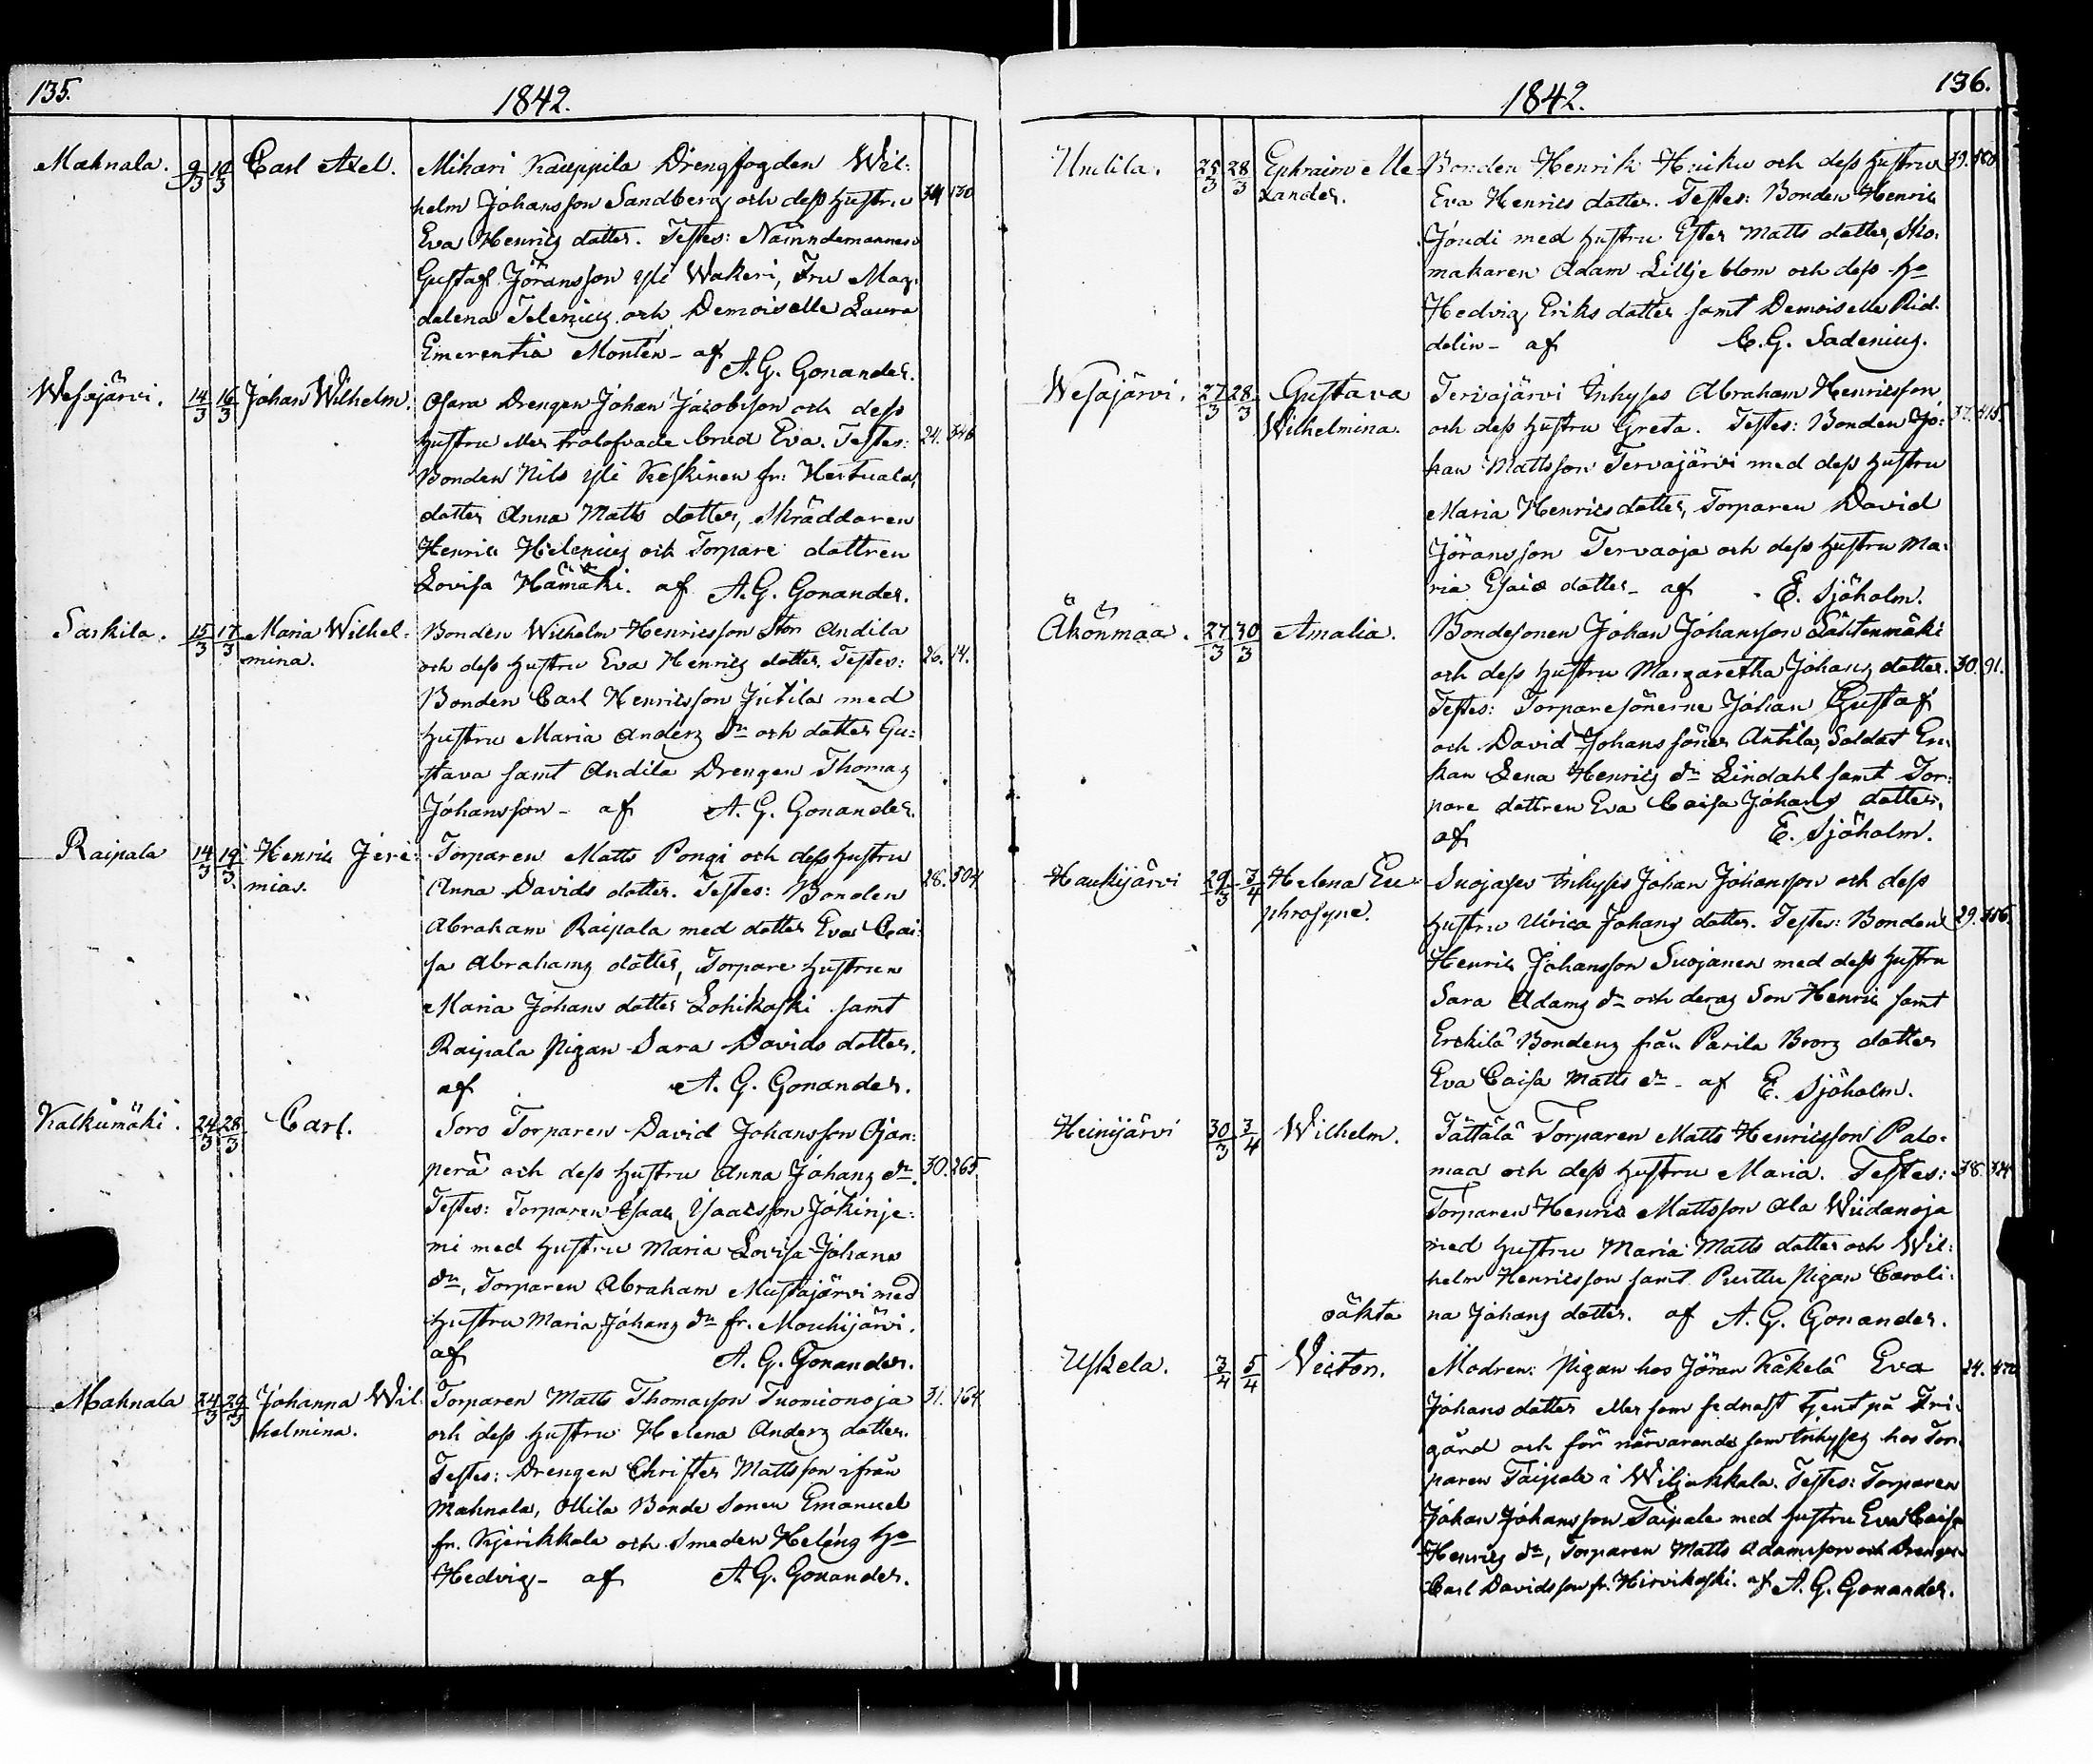 135.
1842.
Mahnala. 9/3 10/3 Carl Axel. Mihari Kauppila Drengfogden Wil:
helm Johansson Sandberg och dess hustru 34 130
Eva Henrics dotter. Testes: Nämndemannen
Gustaf Jöransson yli Wakeri, Fru Mag:
dalena Telenius och Demoiselle Laura
Emerentia Montén - af A. G. Gonander.
Wesajärvi. 14/3 16/3 Johan Wilhelm. Osara Drengen Johan Jacobsson och dess
hustru eller trolofvade brud Eva. Testes: 24. 346
Bonden Nils yli Keskinen fr: Hertuala,
dotter Anna Matts dotter, Skräddaren
Henric Helenius och Torpare dottren
Lovisa Hämäki. af A. G. Gonander.
Sarkila. 15/3 17/3 Maria Wilhel: Bonden Wilhelm Henricsson Stor Andila
mina. och dess hustru Eva Henrics dotter. Testes: 26. 14.
Bonden Carl Henricsson Jutila med
hustru Maria Anders dr och dotter Gu:
stava samt Andila Drengen Thomas
Johansson - af A. G. Gonander.
Raipala 14/3 19/3 Henric Jere: Torparen Matts Pongi och dess hustru
mias. Anna Davids dotter. Testes: Bonden 28. 304
Abraham Raipala med dotter Eva Cai:
sa Abrahams dotter, Torpare hustrun
Maria Johans dotter Lohikoski samt
Raipala pigan Sara Davids dotter.
af A. G. Gonander.
Kalkumäki. 24/3 28/3 Carl. Soro Torparen David Johansson Ojan:
perä och dess hustru Anna Johans dr. 30. 265.
Testes: Torparen Isaac Isaacsson Jokinje:
mi med hustru Maria Lovisa Johans
dr, Torparen Abraham Mustajärvi med
hustru Maria Johans dr fr. Mouhijärvi.
af A. G. Gonander.
Mahnala 24/3 29/3 Johanna Wil: Torparen Matts Thomasson Tuomionoja 31. 164
helmina. och dess hustru Helena Anders dotter.
Testes: Drengen Christer Mattsson ifrån
Mahnala, Ollila Bonde Sonen Emanuel
fr. Kjerikkala och Smeden Heléns hu
Hedvig - af A. G. Gonander.
136.
1842.
25/3 28/3 Ephraim Ale: Bonden Henrik Heiku och dess hustru 39.
xander. Eva Henrics dotter. Testes: Bonden Henric
Joudi med hustru Ester Matts dotter, Sko:
makaren Adam Lillje blom och dess hu
Hedvig Eriks dotter samt Demoiselle Rid:
delin - af C. G. Sadenius.
Wesajärvi. 27/3 28/3 Gustava Tervajärvi Inhyses Abraham Henricsson
Wilhelmina. och dess hustru Greta. Testes: Bonden Jo: 37. 415.
han Mattsson Tervajärvi med dess hustru
Maria Henrics dotter, Torparen David
Jöransson Tervaoja och dess hustru Ma:
ria Esaie dotter - af E. Sjöholm.
Äkönmaa. 27/3 30/3 Amalia. Bondesonen Johan Johansson Lähtenmäki
och dess hustru Margaretha Johans dotter. 30. 91.
Testes: Torparesönerne Johan Gustaf
och David Johans söner Antila, Soldat En:
kan Lena Henrics dr Lindahl samt Tor:
pare dottren Eva Caisa Johans dotter,
af E. Sjöholm.
Haukijärvi 29/3 3/4 Helena Eu: Suojases Inhyses Johan Johansson och dess
phrosyne. hustru Ulrica Johans dotter. Testes: Bonden 29. 456.
Henric Johansson Suojanen med dess hustru
Sara Adams dr och deras Son Henric samt
Erckilä Bondens från Parila Brors dotter
Eva Caisa Matts dr - af E. Sjöholm.
Heinijärvi 30/3 3/4 Wilhelm. Tättälä Torparen Matts Henricsson Palo:
maa och dess hustru Maria. Testes: 38. 324
Torparen Henric Mattsson Ala Wiidanoja
med hustru Maria Matts dotter och Wil:
helm Henricsson samt Purttu pigan Caroli:
oäkta na Johans dotter. af A. G. Gonander.
Yskela. 3/4 5/4 Victor. Modren: pigan hos Jöran Käkelä Eva 24. 470
Johans dotter eller som sednast tjent på Fri:
gård och för närvarande som Inhyses hos Tor:
paren Taipale i Wiljakkala. Testes: Torparen
Johan Johansson Taipale med hustru Eva Caisa
Henrics dr, Torparen Matts Adamsson och Drengen
Carl Davidsson fr. Hirvikoski. af A. G. Gonander.